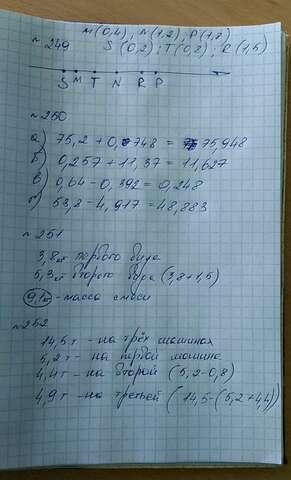 №249
M(0,4); N(1,2); P(1,7)
S(0,2); T(0,7); R(1,5)
S M T N R P
№250
а) 75,2 + 0,748 = 75,948
б) 0,257 + 11,37 = 11,627
в) 0,64 - 0,392 = 0,248
г) 53,8 - 4,917 = 48,883
№251
3,8кг первого вида
5,3кг второго вида (3,8+1,5)
9,1кг - масса смеси
№252
14,5т - на трёх машинах
5,2т - на первой машине
4,4т - на второй (5,2-0,8)
4,9т - на третьей (14,5-(5,2+4,4)